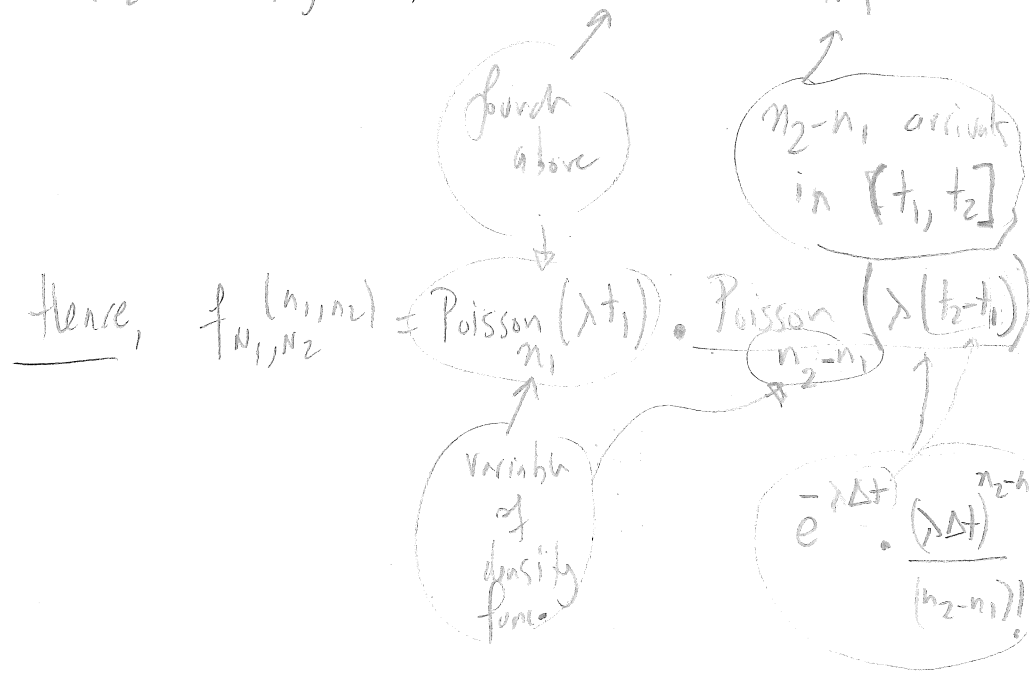 found
above
n₂-n₁ arrivals
in [t₁, t₂]
Hence, f_{N₁,N₂}(n₁,n₂) = Poisson_{n₁}(λt₁) · Poisson_{n₂-n₁}(λ(t₂-t₁))
variable
of
density
func.
e^{-λΔt} · (λΔt)^{n₂-n}/(n₂-n₁)!